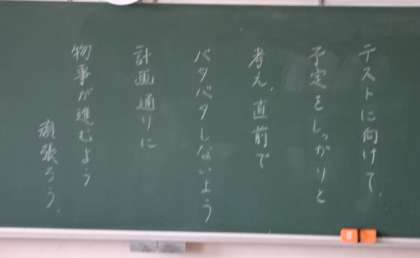 テストに向けて、
予定をしっかりと
考え、直前で
バタバタしないよう
計画通りに
物事が進むよう
頑張ろう。